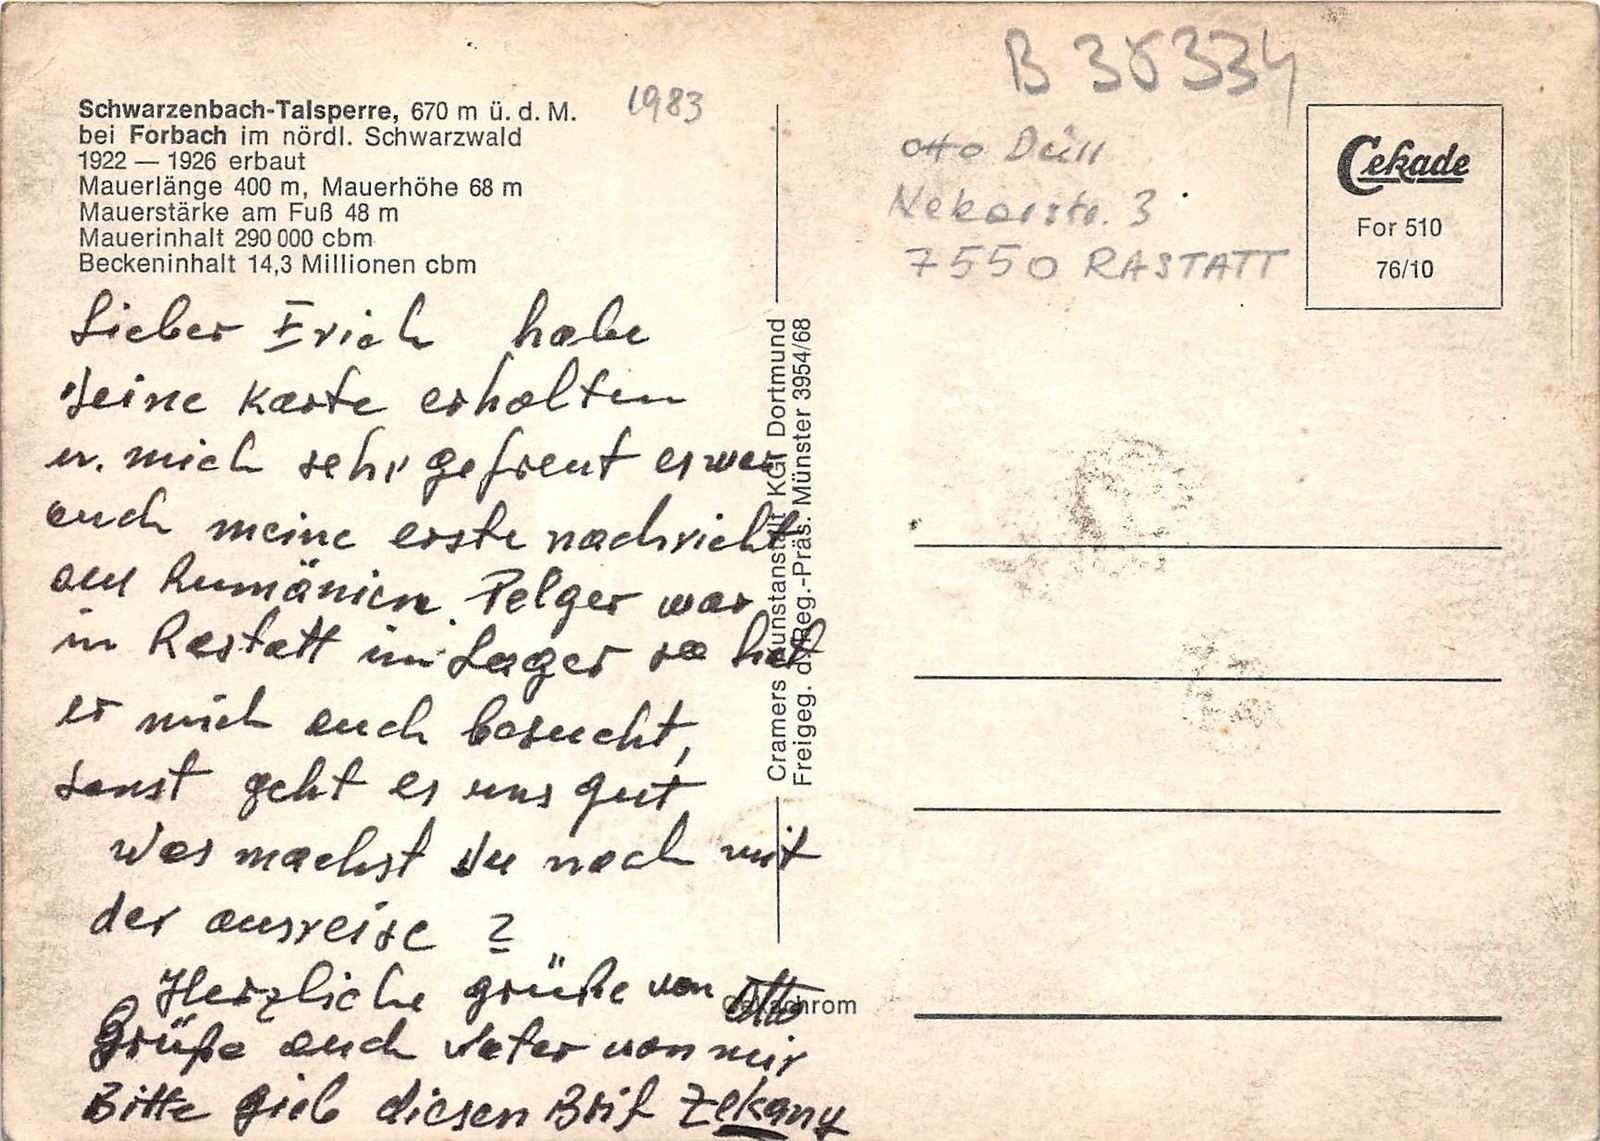 Schwarzenbach-Talsperre, 670 m ü. d. M.
bei Forbach im nördl. Schwarzwald
1922 — 1926 erbaut
Mauerlänge 400 m, Mauerhöhe 68 m
Mauerstärke am Fuß 48 m
Mauerinhalt 290 000 cbm
Beckeninhalt 14,3 Millionen cbm
1983
Lieber Erich habe
deine Karte erhalten
u. mich sehr gefreut es war
auch meine erste nachricht
aus Rumänien. Pelger war
in Rastatt im Lager so hat
er mich auch besucht,
sonst geht es uns gut
Was machst du noch mit
der ausreise ?
Herzliche grüße von Otto
Grüße auch Vater von mir
Bitte gieb diesen Brif Zekany
Cramers Kunstanstalt KG, Dortmund
Freigeg. d. Reg.-Präs. Münster 3954/68
Cekachrom
B 38334
otto Düll
Nekarstr. 3
7550 RASTATT
Cekade
For 510
76/10